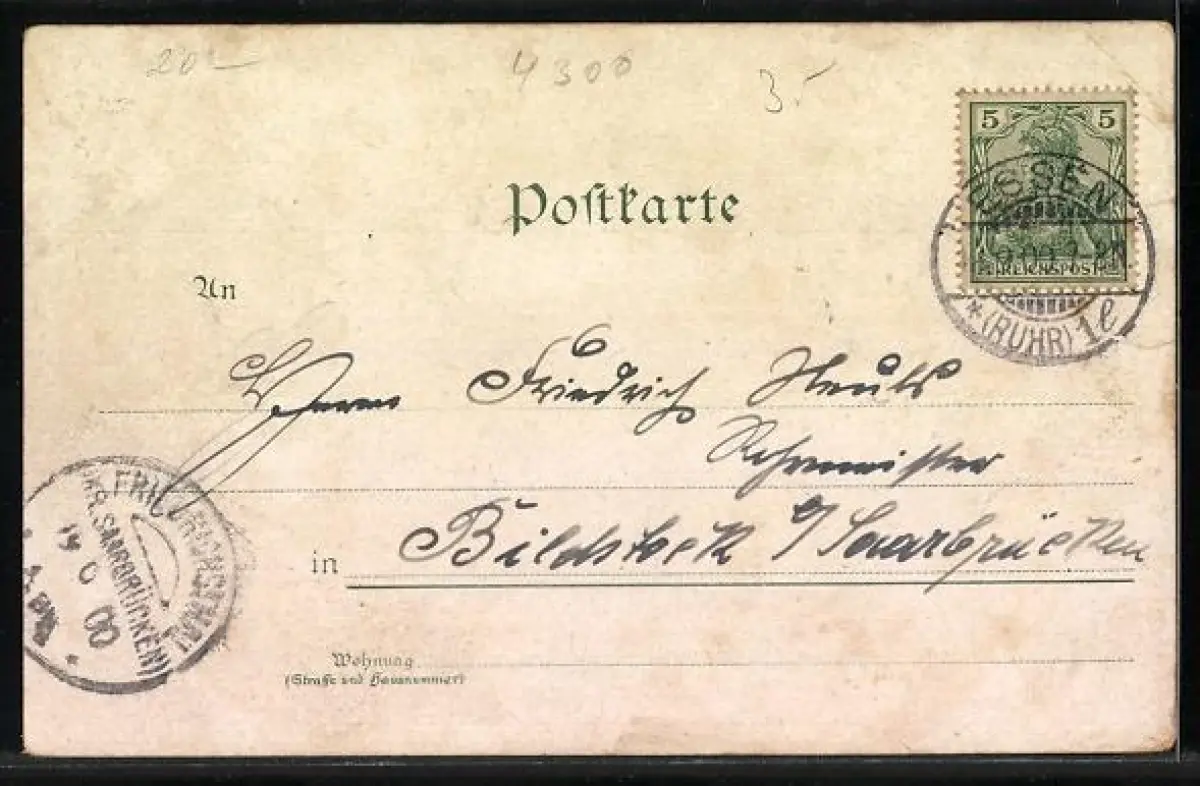 20
4300
3
5 5
REICHSPOST
ESSEN
(RUHR) 1e
Postkarte
An
Herrn Friedrich
in Bildstock b/ Saarbrücken
(KR. SAARBRÜCKEN)
00
Wohnung
(Straße und Hausnummer)